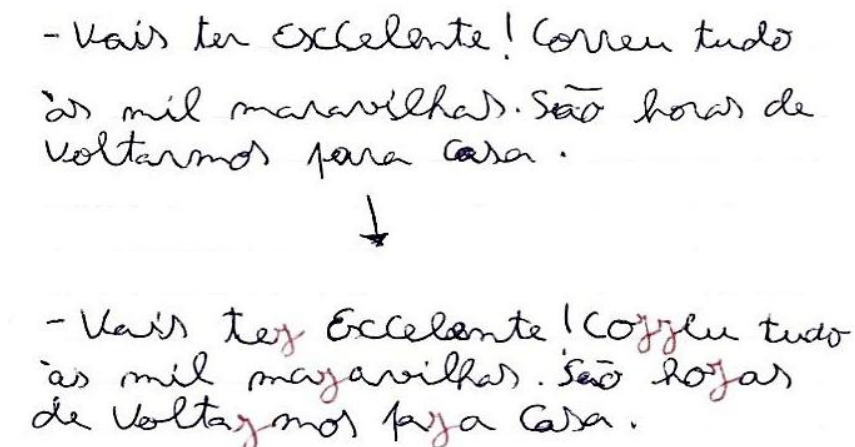 - Vais ter excelente! Correu tudo
às mil maravilhas. São horas de
voltarmos para casa.
- Vais ter Excelente! Correu tudo
às mil maravilhas. São horas
de voltarmos para casa.